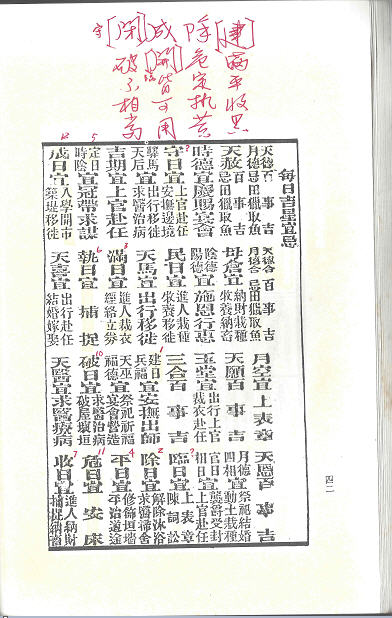 [建]滿平收黑
除危定执黄
成[開]皆可用
[閉]破不相当
守
每日吉星宜忌
天德月德百事吉忌田獵取魚　天德合月德合百事吉忌田獵取魚　月空宜上表章　天恩百事吉
天赦百事吉忌田獵取魚　母倉宜納財栽種牧養納畜　天願百事吉　月德四相宜祭祀結婚動土栽種
時德宜慶賜宴會　陰德陽德宜施恩行惠　玉堂宜出行上官裁衣赴任　官日相日宜襲爵受封上官赴任
守日宜上官赴任安撫邊境　民日宜進人栽種牧養移徙　三合百事吉　臨日宜上表章陳詞訟
驛馬天后宜出行移徙求醫治病　天馬宜出行移徙　建日兵福宜安撫出師　除日宜解除沐浴求醫掃舍
吉期宜上官赴任　滿日宜進人裁衣經絡立券　天巫福德宜祭祀祈福宴會營造　平日宜修飾垣墻平治道途
定日時陰宜冠帶求謀　執日宜捕捉　破日宜求醫治病破屋壞垣　危日宜安床
成日宜入學開市築堤移徙　天喜宜出行赴任結婚嫁娶　天醫宜求醫療病　收日宜進人納財捕捉納畜
四二